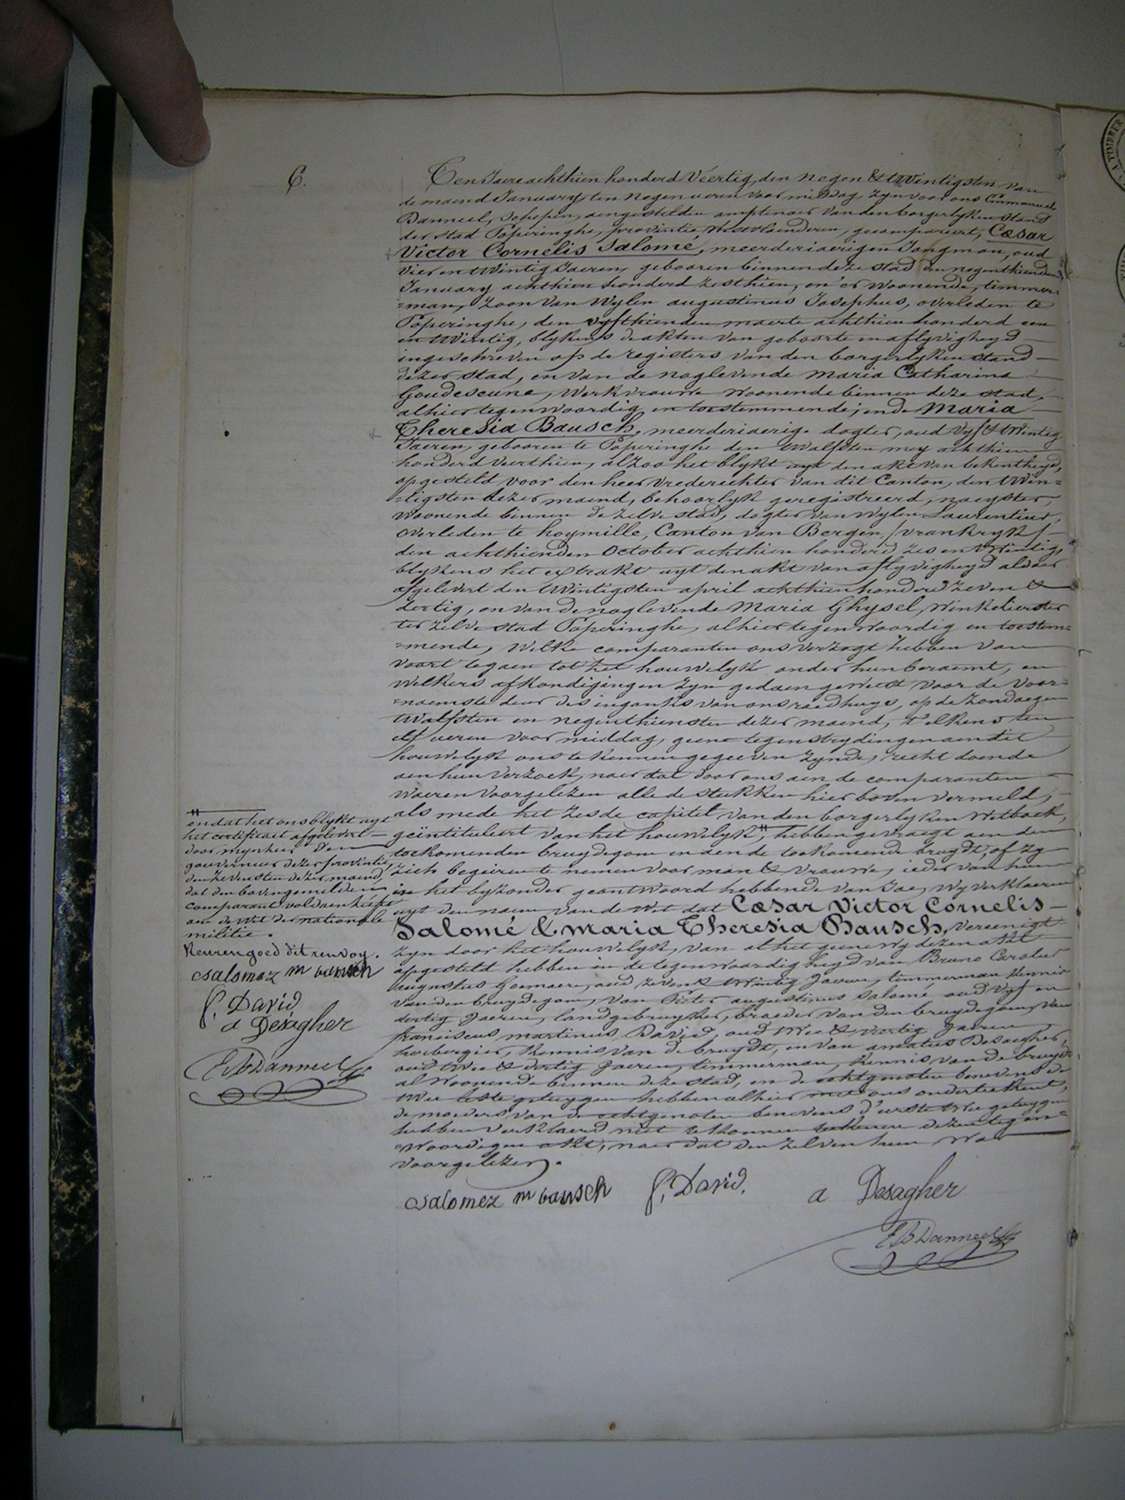 6.
Ten Jaere achthien honderd Veertig, den negen & twintigsten van
de maend January, ten negen ueren voor middag, zyn voor ons Emmanuel
Danneel, schepen, aengestelden amptenaer van den borgerlyken stand
der stad Poperinghe, provintie Westvlaenderen, gecompareert, Cæsar
Victor Cornelis Salomé, meerderjaerigen Jongman, oud
vier en twintig Jaeren, gebooren binnen deze stad den negenthienden
January achthien honderd zesthien, en er woonende, timmer=
=man, zoon van wylen augustinus Josephus, overleden te
Poperinghe, den vyfthienden maerte achthien honderd een
en twintig, blykens de akten van geboorte en aflyvigheyd
ingeschreven op de registers van den borgerlyken stand
dezer stad, en van de naglevende Maria Catharina
Goudeseune, werkvrouwe woonende binnen deze stad,
alhier tegenwoordig en toestemmende; ende Maria
Theresia Bausch, meerderjaerige dogter, oud vyf & twintig
Jaeren, gebooren te Poperinghe den twalfsten mey achthien
honderd veerthien, alzoo het blykt uyt den akt van bekentheyd,
opgesteld voor den heer vrederechter van dit Canton, den twin=
=tigsten dezer maend, behoorlyk geregistreerd, naeyster,
woonende binnen de zelve stad, dogter van wylen Laurentius,
overleden te hoymille, Canton van Bergen /vrankryk/
den achthienden October achthien honderd zes en twintig,
blykens het extrakt uyt den akt van aflyvigheyd aldaer
afgelevert den twintigsten april achthien honderd zeven &
dertig, en van de naglevende Maria Ghysel, winkelierster
ter zelve stad Poperinghe, alhier tegenwoordig en toestem=
=mende, welke comparanten ons verzogt hebben van
voort tegaen tot het houwelyk onder hun beraemt, en
welkers afkondigingen zyn gedaen geweest voor de voor=
=naemste deur des ingangs van ons raedhuys, op de zondaegen
twalfsten en negenthiensten dezer maend, telkens ten
elf ueren voor middag, geene tegenstrydingen aen dit
houwelyk ons te kennen gegeven zynde, recht doende
aen hun verzoek, naer dat door ons aen de comparanten
waeren voorgelezen alle de stukken hier boven vermeld,
als mede het zesde capitel van den borgerlyken wetboek,
geïntituleert van het houwelyk, # hebben gevraegt aen den
toekomenden bruydegom en aen de toekomende bruydt, of zy
zich begeiren te nemen voor man & vrouwe, ieder van hun
in het byzonder geantwoord hebbende van Jae, wy verklaeren
uyt den naem van de wet dat Cæsar Victor Cornelis
Salomé & Maria Theresia Bausch, vereenigt
zyn door het houwelyk, van al het geene wy dezen akt
opgesteld hebben in de tegenwoordigheyd van Bruno Carolus
Augustus Gomaere, oud zeven & twintig Jaeren, timmerman, kennis
van den bruydegom, van Pieter augustinus Salomé, oud vyf en
dertig Jaeren, landgebruyker, broeder van den bruydegom, van
franciscus martinus David, oud twee & veertig Jaeren,
herbergier, kennis van de bruydt, en van amatus Desagher,
oud twee & dertig Jaeren, timmerman, kennis van de bruydt
al woonende binnen deze stad, en de echtgenoten benevens de
twee leste getuygen hebben alhier met ons onderteekent,
de moeders van de echtgenoten benevens d'eerste twee getuygen
hebben verklaerd niet te konnen schryven dezen tegen=
=woordigen akt, naer dat den zelven hun was
voorgelezen.
Salomez m bausch f, David. a Desagher
E B Danneel
# en dat het ons blykt uyt
het certificaet afgelevert
door mynheer den
gouverneur dezer provintie,
den zevensten dezer maend
dat den bovengemelden
comparant voldaen heeft
aen de wet der nationale
militie.
Keuren goed dit renvoy.
Salomez m bausch
f, David
a Desagher
E B Danneel